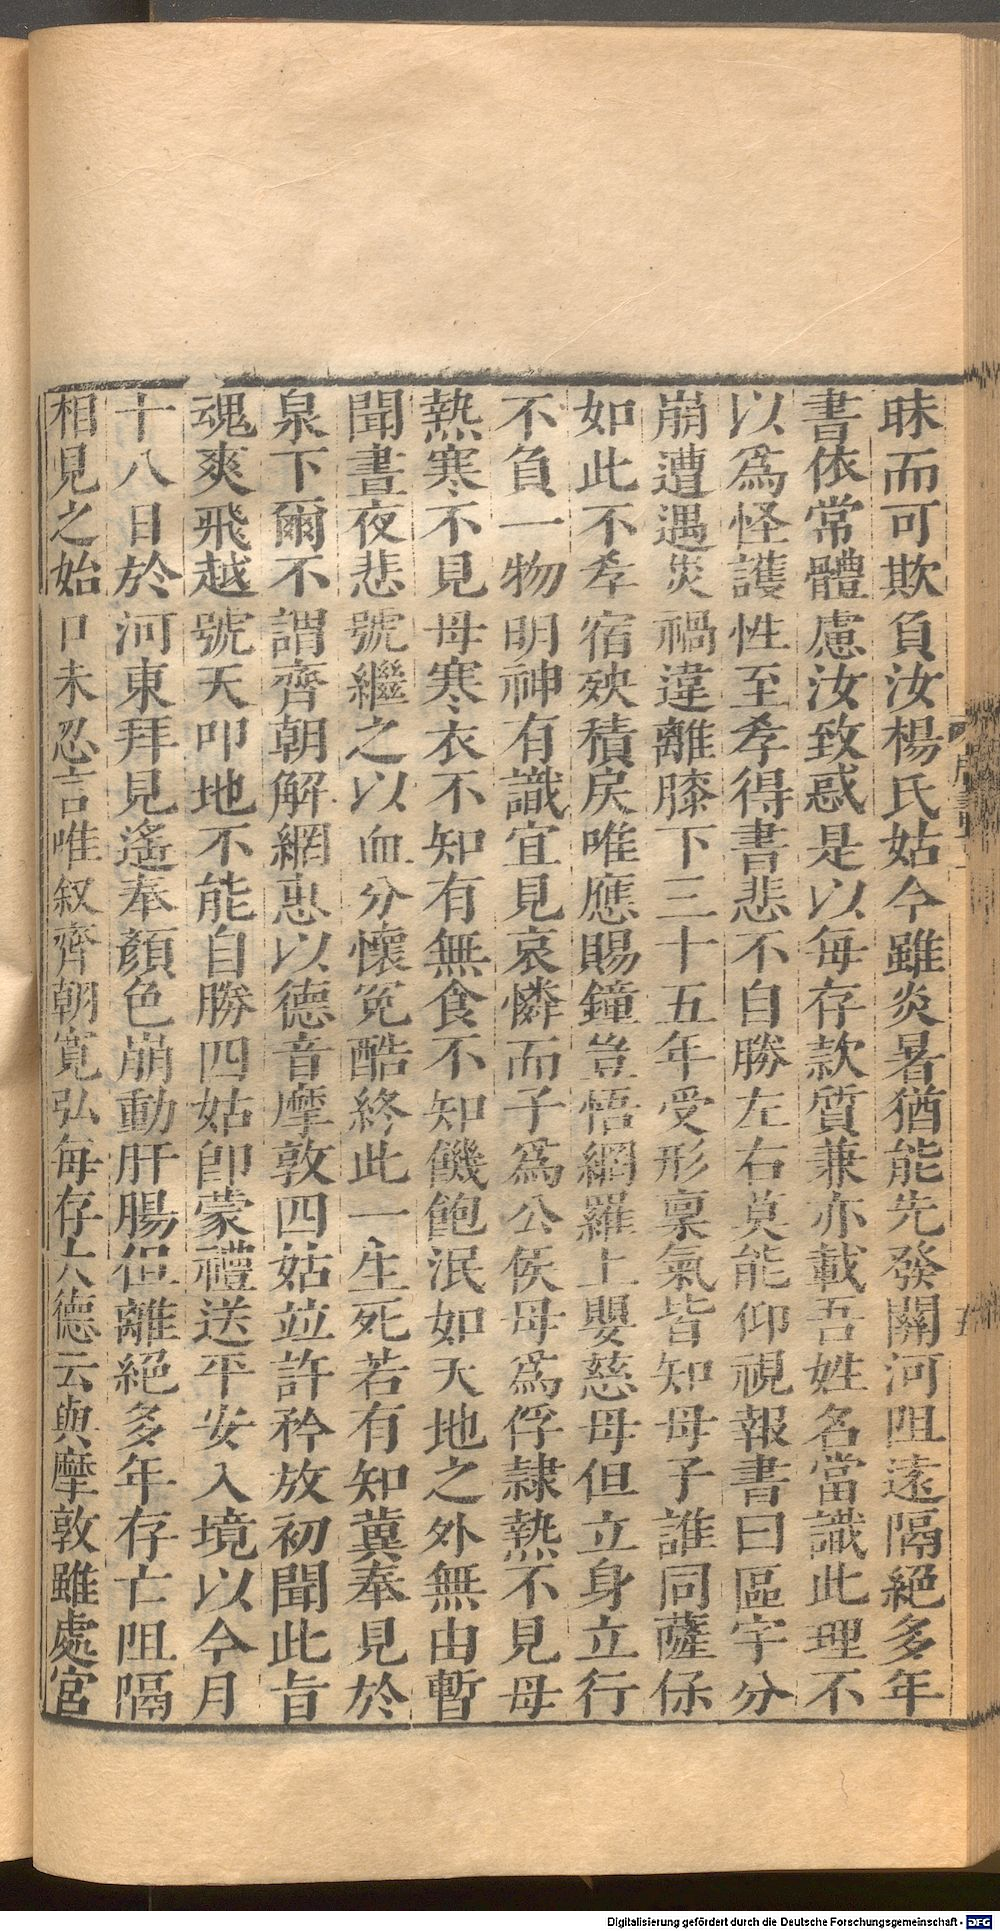 昧而可欺負汝楊氏姑今雖炎暑猶能先發關河阻遠隔絕多年
書依常體慮汝致惑是以每存款質兼亦載吾姓名當識此理不
以爲怪護性至孝得書悲不自勝左右莫能仰視報書曰區宇分
崩遭遇災禍違離膝下三十五年受形禀氣皆知母子誰同薩保
如此不孝宿殃積戾唯應賜鐘豈悟網羅上嬰慈母但立身立行
不負一物明神有識宜見哀憐而子爲公侯母爲俘隷熱不見母
熱寒不見母寒衣不知有無食不知饑飽泯如天地之外無由暫
聞晝夜悲號繼之以血分懷冤酷終此一生死若有知冀奉見於
泉下爾不謂齊朝解網惠以德音摩敦四姑竝許矜放初聞此旨
魂爽飛越號天叩地不能自勝四姑卽蒙禮送平安入境以今月
十八日於河東拜見遙奉顏色崩動肝腸但離絕多年存亡阻隔
相見之始口未忍言唯叙齊朝寬弘每存大德云與摩敦雖處宮
Digitalisierung gefördert durch die Deutsche Forschungsgemeinschaft - DFG